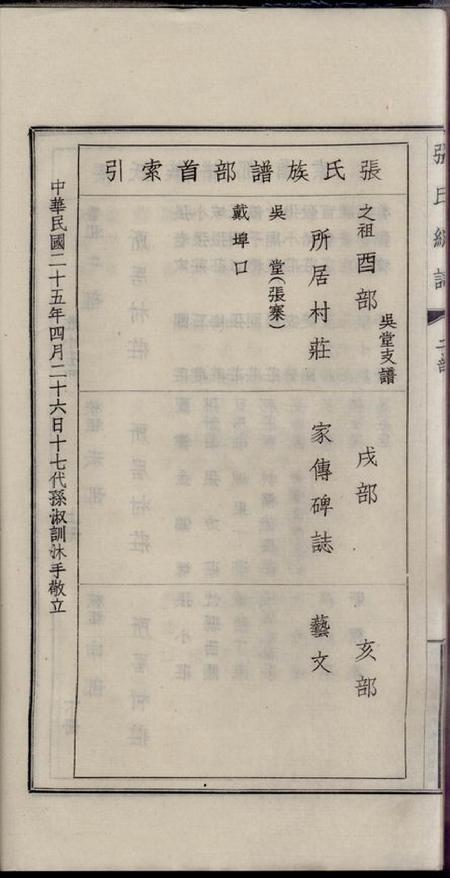 張氏族譜部首索引
吳堂支譜
之祖酉部
所居村莊
吳堂(張寨)
戴埠口
戌部
家傳碑誌
亥部
藝文
中華民國二十五年四月二十六日十七代孫淑訓沐手敬立
張氏